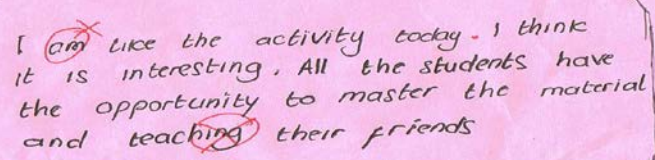 I am like the activity today. I think
it is interesting. All the students have
the opportunity to master the material
and teaching their friends